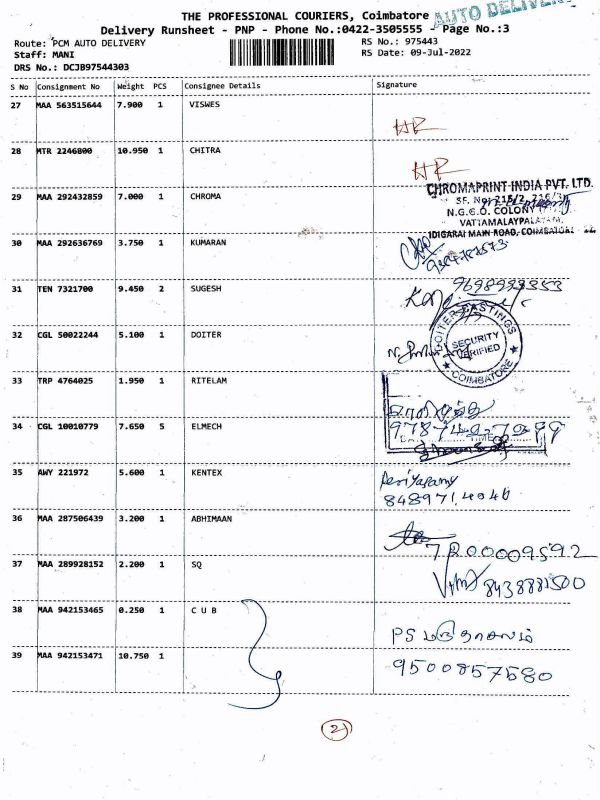 THE PROFESSIONAL COURIERS, Coimbatore
AUTO DELIVERY
Delivery Runsheet - PNP - Phone No.:0422-3505555 - Page No.:3
Route: PCM AUTO DELIVERY
RS No.: 975443
Staff: MANI
RS Date: 09-Jul-2022
DRS No.: DCJB97544303
S No Consignment No Weight PCS Consignee Details Signature
27 MAA 563515644 7.900 1 VISWES
HR
28 MTR 2246800 10.950 1 CHITRA
HR
29 MAA 292432859 7.000 1 CHROMA
CHROMAPRINT INDIA PVT. LTD.
SF. No: 215/2,
N.G.G.O. COLONY
VATTAMALAYPALAYAM,
IDIGARAI MAIN ROAD, COIMBATORE
30 MAA 292636769 3.750 1 KUMARAN
31 TEN 7321700 9.450 2 SUGESH
32 CGL 50022244 5.100 1 DOITER
DOITER CASTINGS
SECURITY
VERIFIED
COIMBATORE
33 TRP 4764025 1.950 1 RITELAM
34 CGL 10010779 7.650 5 ELMECH
35 AWY 221972 5.600 1 KENTEX
Periyasamy
8489714046
36 MAA 287506439 3.200 1 ABHIMAAN
7200009592
37 MAA 289928152 2.200 1 SQ
8438881500
38 MAA 942153465 0.250 1 C U B
PS மருதாசலம்
39 MAA 942153471 10.750 1
9500857580
2